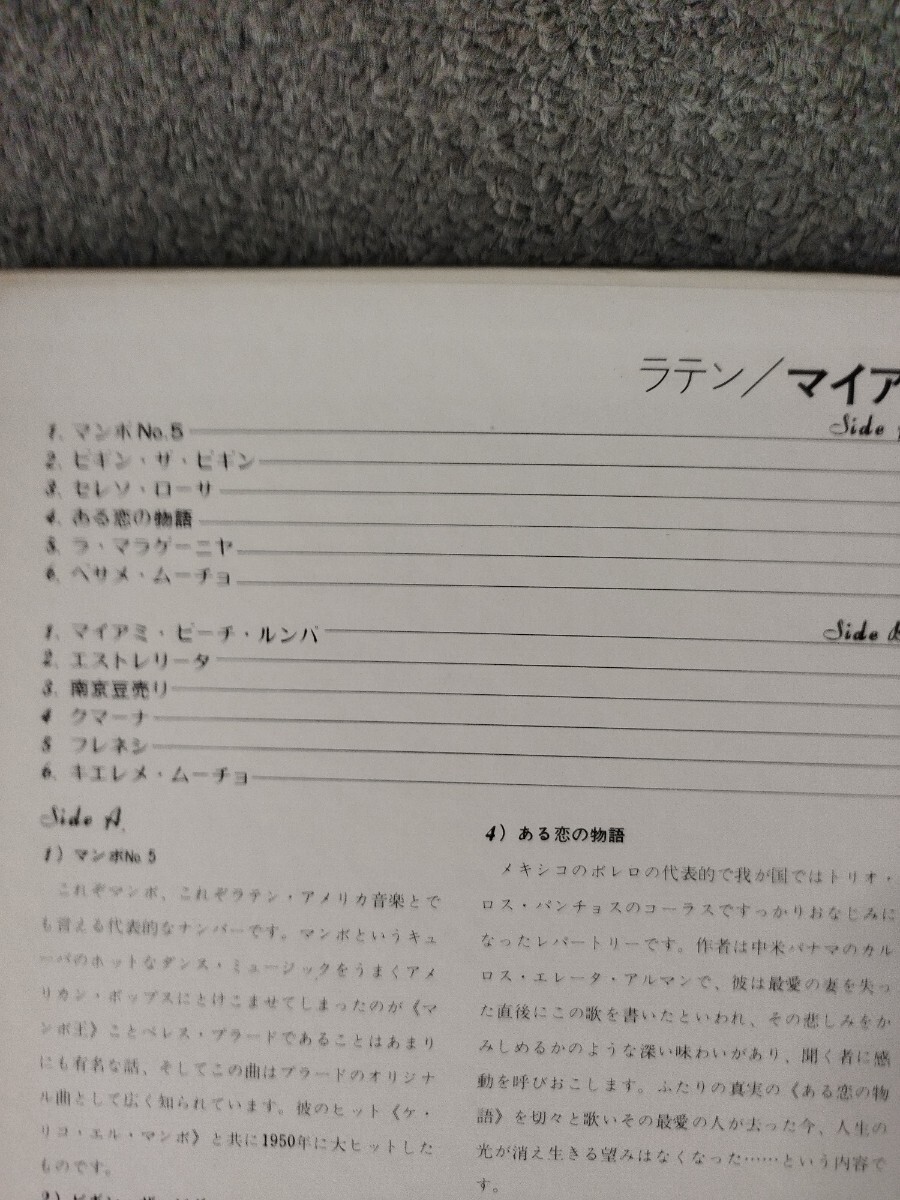 ラテン／マイア
Side
1. マンボNo.5
2. ビギン・ザ・ビギン
3. セレソ・ローサ
4. ある恋の物語
5. ラ・マラゲーニヤ
6. ベサメ・ムーチョ
Side B
1. マイアミ・ビーチ・ルンバ
2. エストレリータ
3. 南京豆売り
4 クマーナ
5 フレネシ
6. キエレメ・ムーチョ
Side A.
1) マンボNo.5
これぞマンボ、これぞラテン・アメリカ音楽とで
も言える代表的なナンバーです。マンボというキュ
ーバのホットなダンス・ミュージックをうまくアメ
リカン・ポップスにとけこませてしまったのが《マ
ンボ王》ことペレス・プラードであることはあまり
にも有名な話、そしてこの曲はプラードのオリジナ
ル曲として広く知られています。彼のヒット《ケ・
リコ・エル・マンボ》と共に1950年に大ヒットした
ものです。
2) ビギン・ザ・ビギン
4) ある恋の物語
メキシコのボレロの代表的で我が国ではトリオ・
ロス・パンチョスのコーラスですっかりおなじみに
なったレパートリーです。作者は中米パナマのカル
ロス・エレータ・アルマンで、彼は最愛の妻を失っ
た直後にこの歌を書いたといわれ、その悲しみをか
みしめるかのような深い味わいがあり、聞く者に感
動を呼びおこします。ふたりの真実の《ある恋の物
語》を切々と歌いその最愛の人が去った今、人生の
光が消え生きる望みはなくなった……という内容で
す。